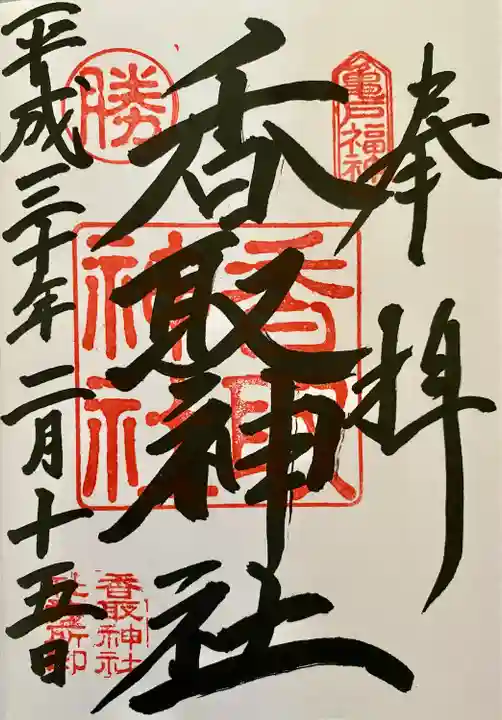 奉拝
亀戸福神
香取神社
香取神社
勝
平成三十年二月十五日
香取神社
社務所印